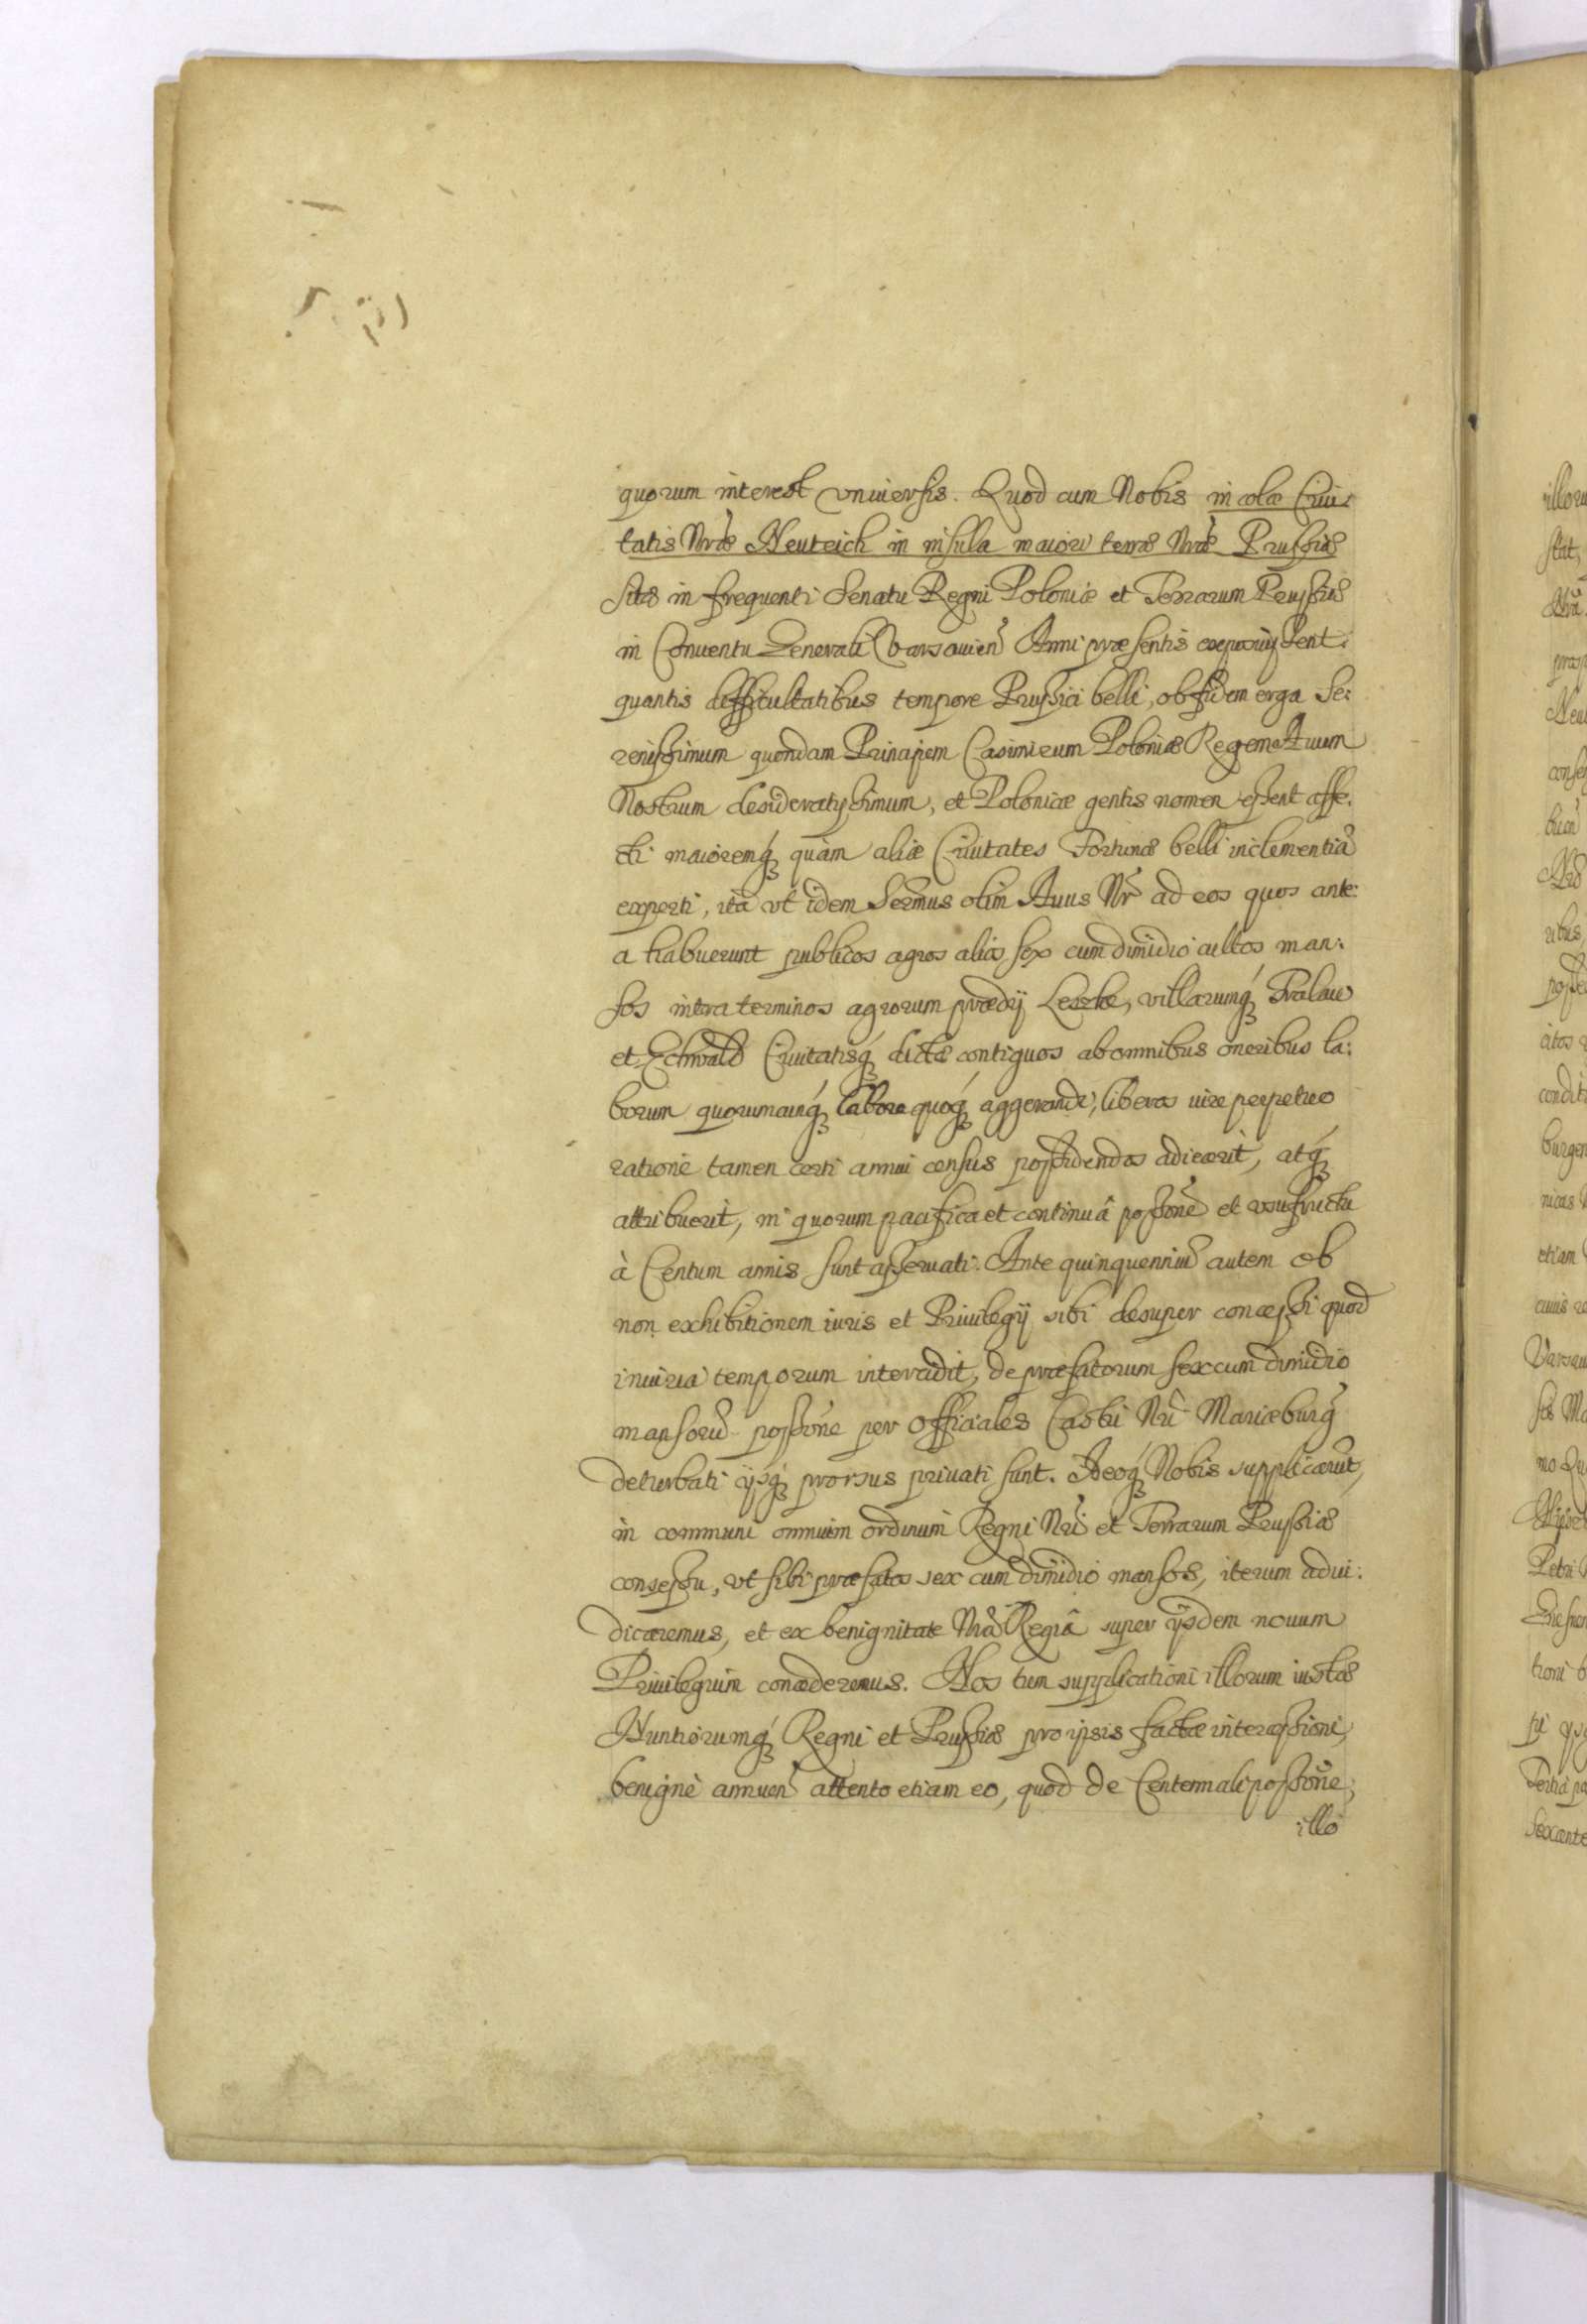 quorum interest vniuersis. Quod cum Nobis incolæ Ciui:
tatis Nræ Neuteich in insula maiori terræ Nræ Prussiæ
sitæ in frequenti Senatu Regni Poloniæ et Terrarum Prussiæ
in Conuentu Generali Varsauien Anni præsentis exposuissent.
quantis difficultatibus tempore Prussici belli, ob fidem erga Se:
renissimum quondam Principem Casimirum Poloniæ Regem Auum
Nostrum desideratissimum, et Polonicæ gentis nomen essent affe.
cti maioremq quàm aliæ Ciuitates Fortunæ belli inclementiã
experti, ita vt idem Sermus olim Auus Nr ad eos quos ante:
a habuerunt publicos agros alios sex cum dimidio cultos man:
sos intra terminos agrorum prædij Leszke, villarumq Tralau
et Echwald Ciuitatisq dictæ contiguos ab omnibus oneribus la:
borum quorumcunq labore quoq aggerandi, liberos iure perpetuo
ratione tamen certi annui census possidendos adiecerit, atq
attribuerit, in quorum pacifica et continuâ possone et vsufructu
à Centum annis sunt asseruati. Ante quinquenniũ autem ob
non exhibitionem iuris et Priuilegij sibi desuper concessi quod
iniuria temporum intercidit, de præfatorum sex cum dimidio
mansorũ possone per Officiales Castri Nri Mariæburg
deturbati ijsq prorsus priuati sunt. Ideoq Nobis supplicarũt,
in communi omnium ordinum Regni Nri et Terrarum Prussiæ
consessu, vt sibi præfatos sex cum dimidio mansos, iterum adiu:
dicaremus, et ex benignitate Nrã Regiâ super ijsdem nouum
Priuilegium concederemus. Nos tum supplicationi illorum iustæ
Nuntiorumq Regni et Prussiæ pro ipsis factæ intercessioni,
benignè annuen attento etiam eo, quod de Centennali possone,
illo